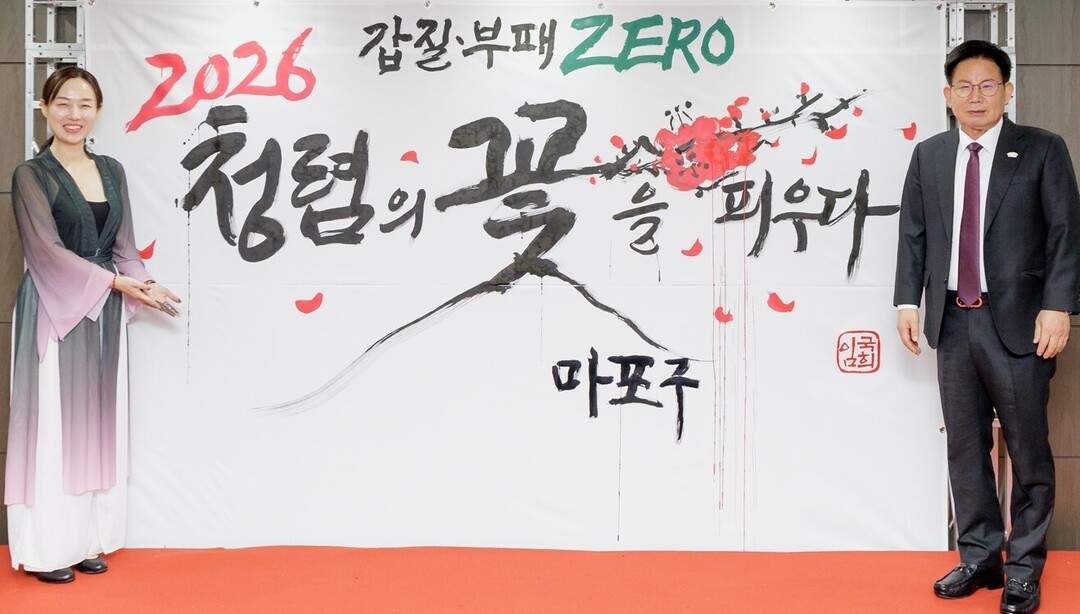 2026 갑질·부패 ZERO
청렴의 꽃을 피우다
마포구
임국희